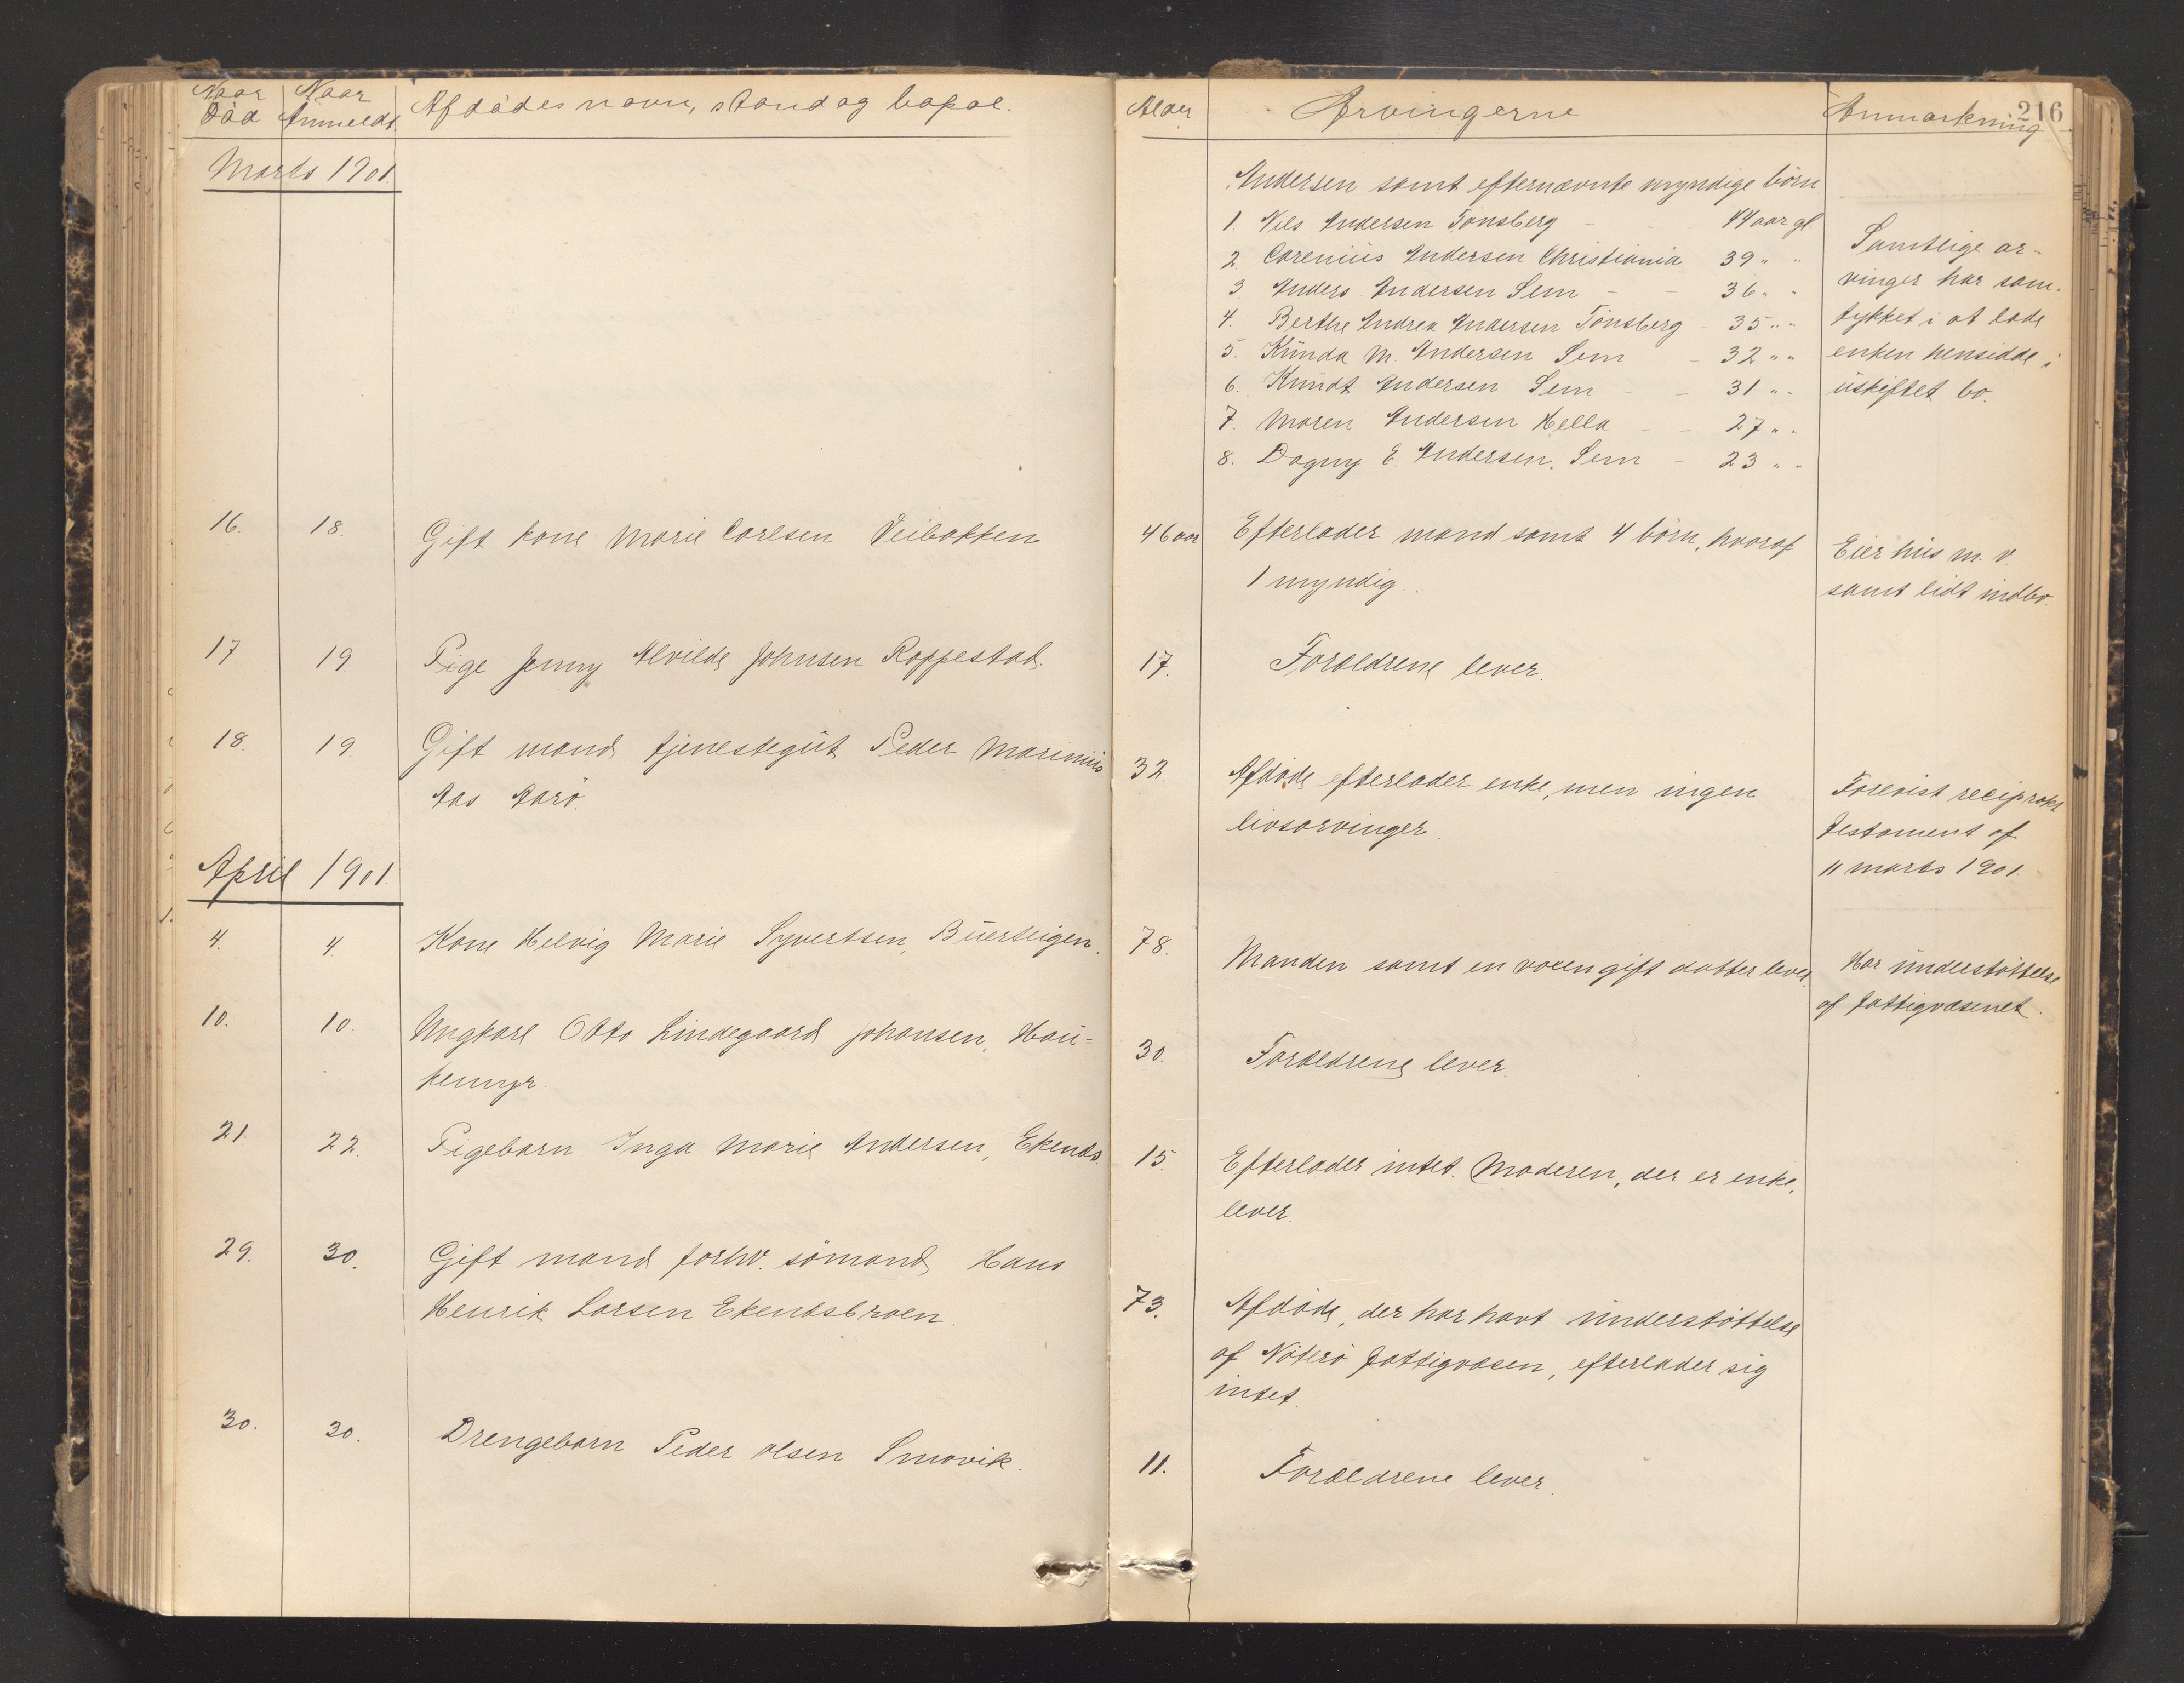 Naar Død
Naar Anmeldt
Afdødes navn, stand og bopæl.
Marts 1901.
16. 18. Gift kone Marie Carlsen Veibakken
17 19. Pige Jenny Alvilde Johnsen Roppestad.
18. 19. Gift mand tjenestegut Peder Marinius
Aas Aarø.
April 1901.
4. 4. Kone Helvig Marie Syvertsen, Buerteigen.
10. 10. Ungkarl Otto Lindegaard Johansen, Hau=
kemyr.
21. 22. Pigebarn Inga Marie Andersen, Ekenæs.
29. 30. Gift mand forhv. sømand Hans
Henrik Larsen Ekenæsbraen.
30. 30. Drengebarn Peder Olsen Smovik.
216
Alder Arvingerne Anmærkning
Andersen samt efternævnte myndige børn
1. Nils Andersen Tønsberg - - 44 aar gl.
2. Carenius Andersen Christiania 39 " "
3 Anders Andersen Sem - - 36 " "
4. Berthe Andrea Andersen Tønsberg - 35 " "
5. Kunda M. Andersen Sem - 32 " "
6. Knudt Andersen Sem - - 31 " "
7. Maren Andersen Hella - - 27 " "
8. Dagny E. Andersen, Sem - 23 " "
Samtlige ar-
vinger har sam-
tykket i at lade
enken hensidde i
uskiftet bo.
46 aar Efterlader mand samt 4 børn, hvoraf
1 myndig.
Eier hus m. v.
samt lidt indbo.
17. Forældrene lever.
32. Afdøde efterlader enke, men ingen
livsarvinger.
Forevist reciprokt
testament af
11 marts 1901.
78. Manden samt en voxen gift datter lever.
Har understøttelse
af fattigvæsenet.
30. Forældrene lever.
15. Efterlader intet. Moderen, der er enke,
lever.
73. Afdøde, der har havt understøttelse
af Nøterø fattigvæsen, efterlader sig
intet.
11. Forældrene lever.